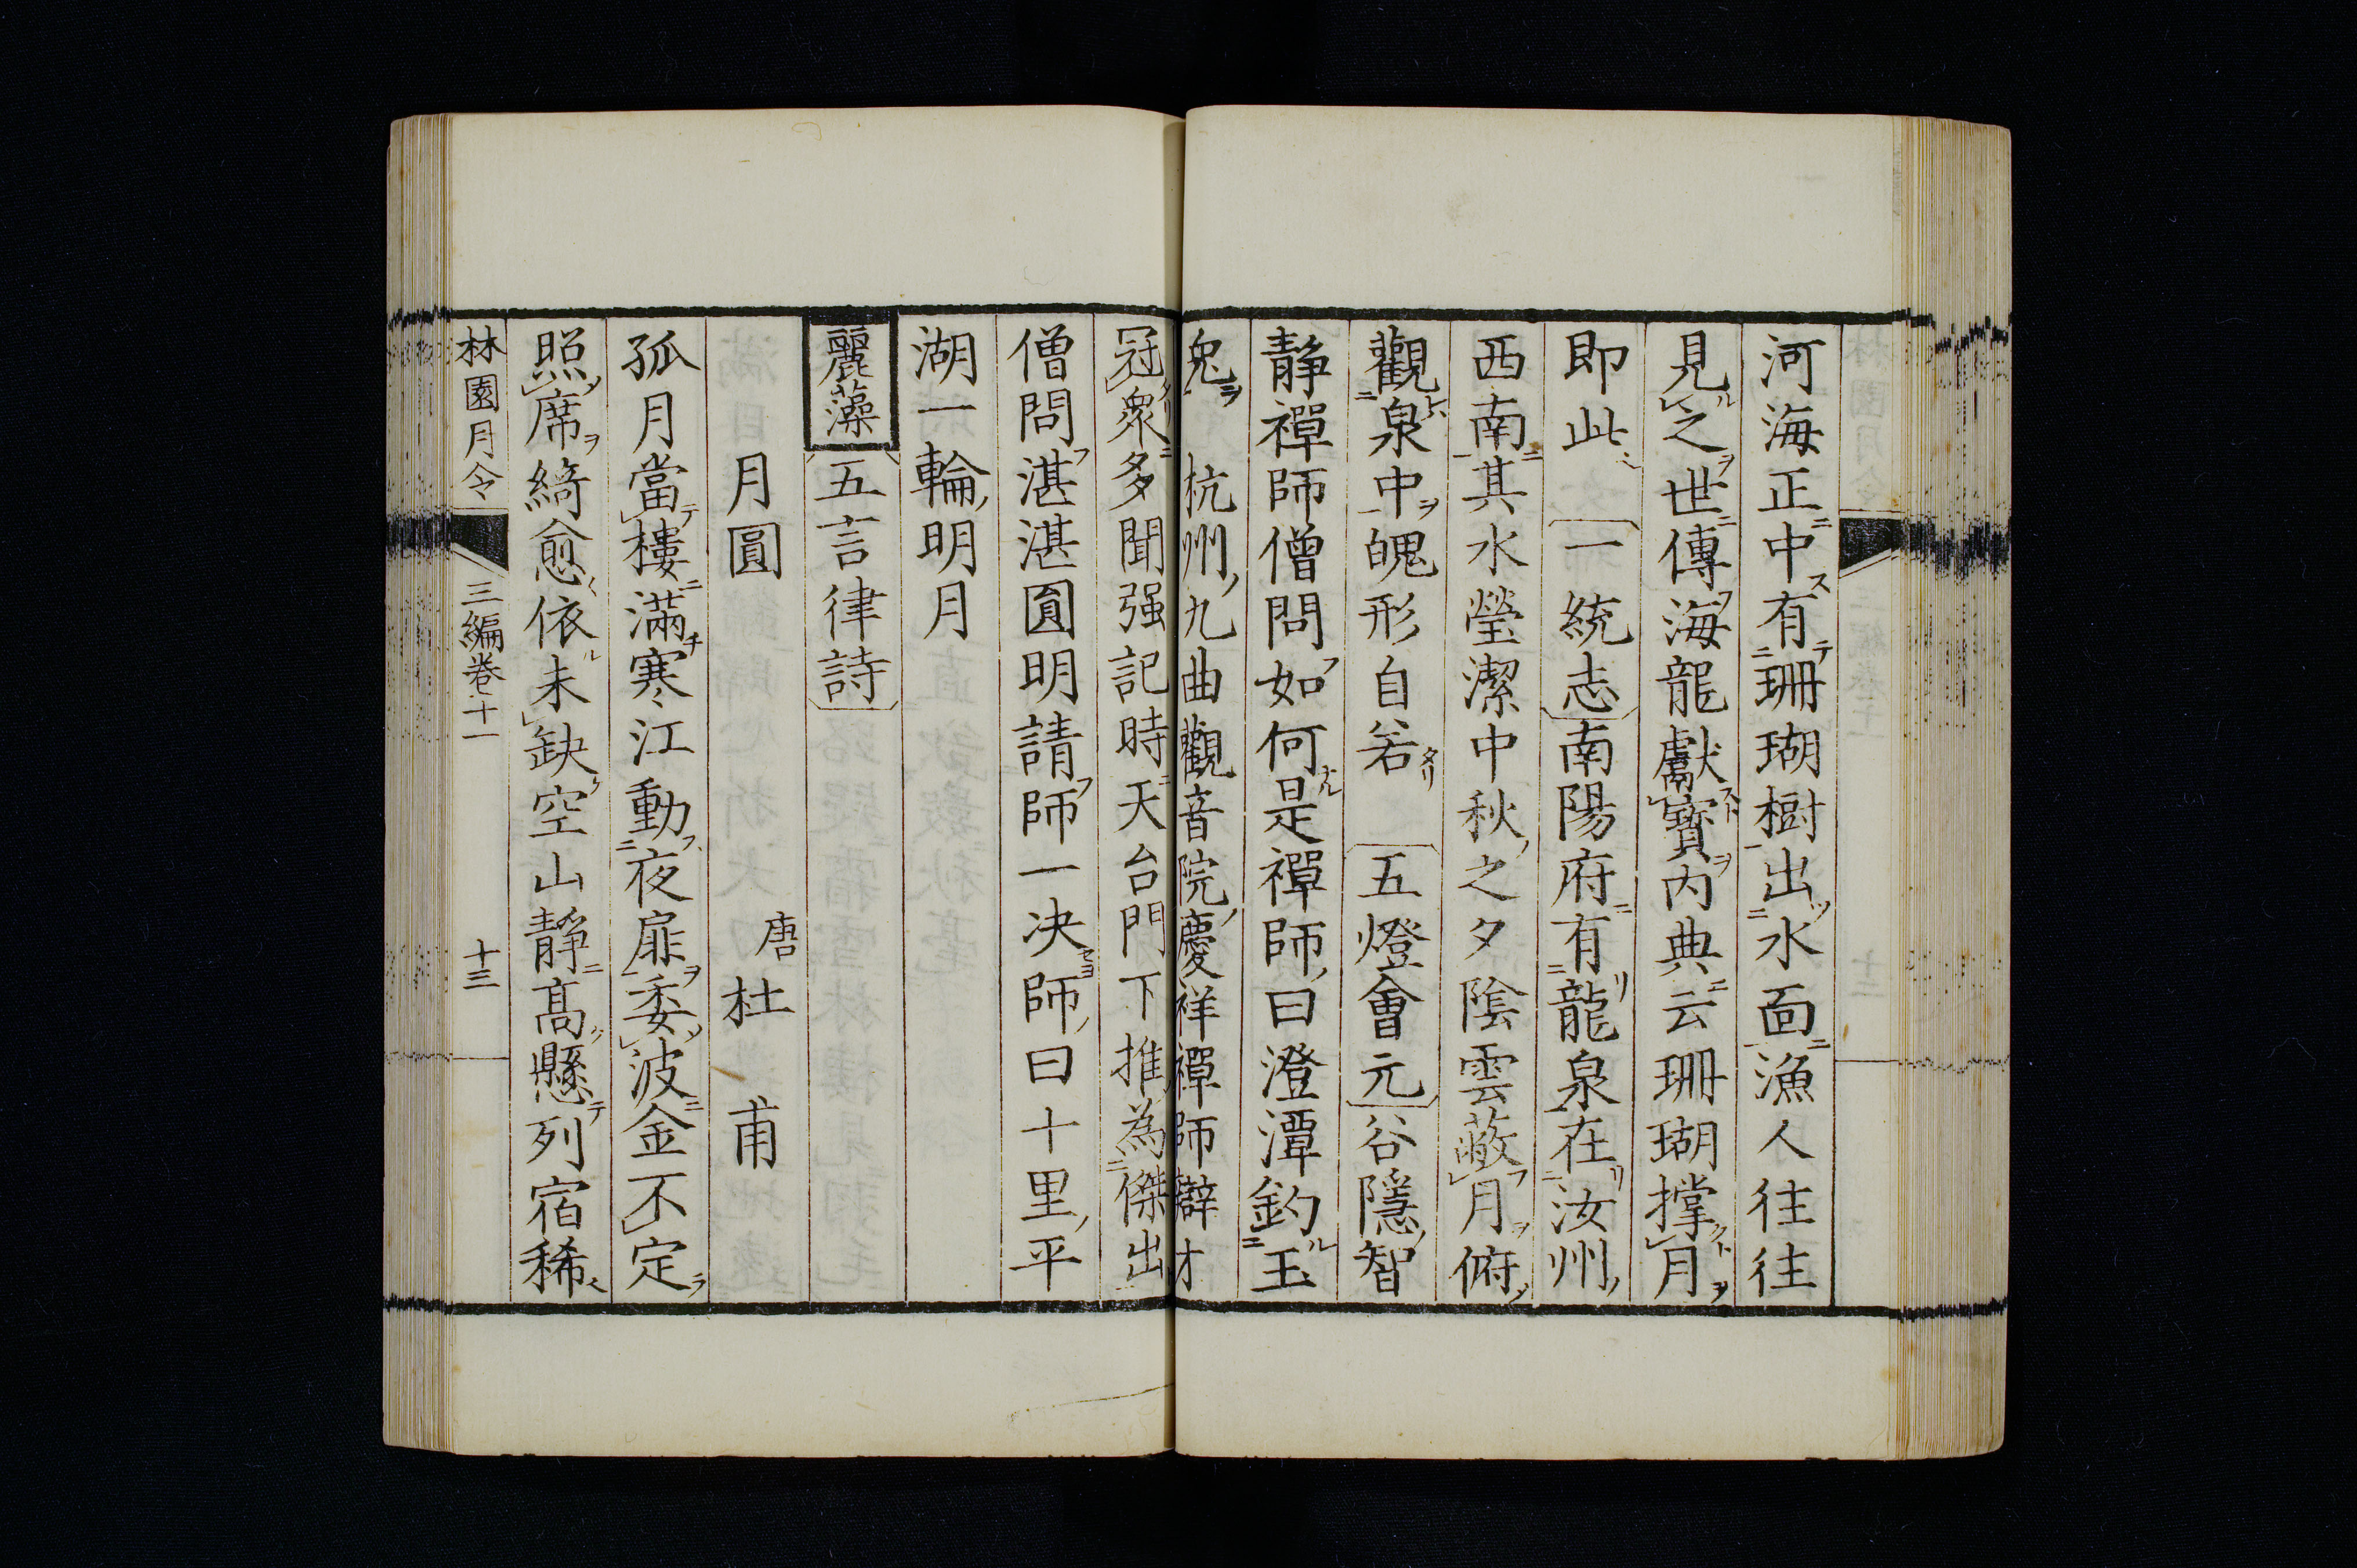 河海正中有珊瑚樹出水面漁人往往
見之世傳海龍獻寶内典云珊瑚撑月
即此 一統志南陽府有龍泉在汝州
西南其水瑩潔中秋之夕陰雲蔽月俯
觀泉中魄形自若 五燈會元谷隱智
静禪師僧問如何是禪師曰澄潭釣玉
兔 杭州九曲觀音院慶祥禪師辯才
冠衆多聞强記時天台門下推為傑出
僧問湛湛圓明請師一决師曰十里平
湖一輪明月
麗藻 五言律詩
月圓 唐 杜甫
孤月當樓滿寒江動夜扉委波金不定
照席綺愈依未缺空山静髙懸列宿稀
林園月令 三編卷十一 十三